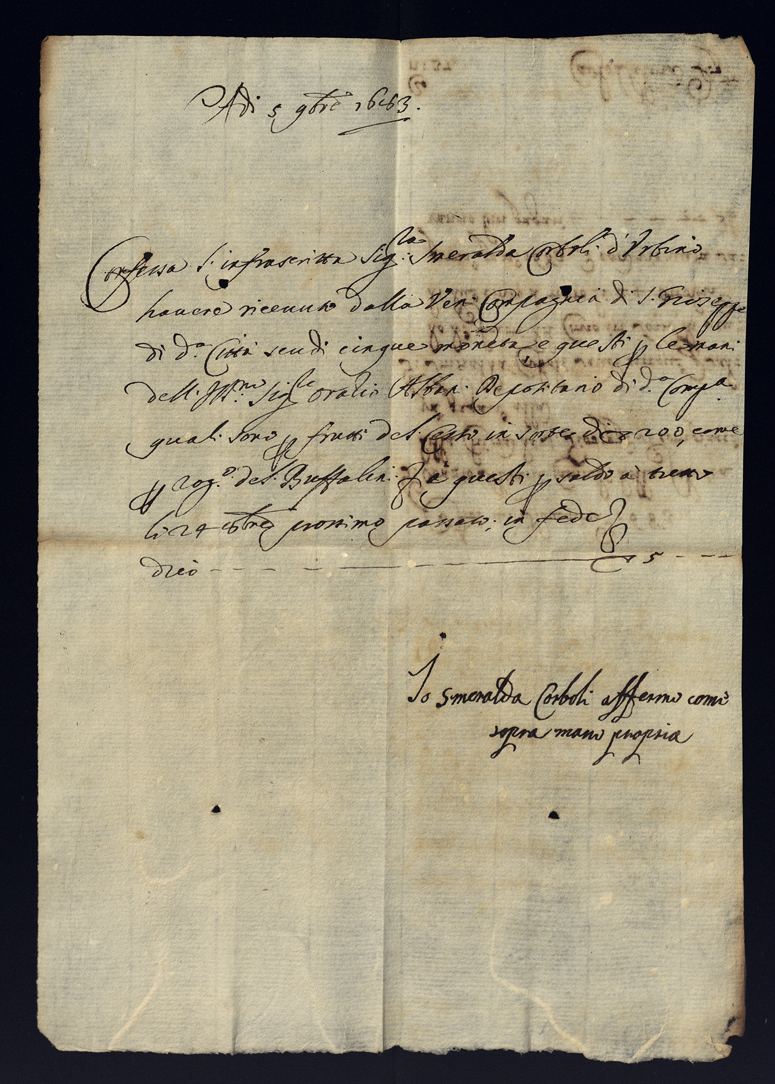 Adi 5 9bre 1663.
Confessa l'infrascritta Sig:ra Smeralda Corboli d'Urbino
havere ricevuto dalla Ven: Compagnia di S. Giuseppe
di d.a Città scudi cinque moneta, e questi p le mani
dell' Ill.mo Sig:re Oratio Abban: Depositario di d.a Comp.a
quali sono p frutti del Censo in sorte di 200, come
p rog.o del Buffalini e questi p saldo à tutto
li 24 8bre prossimo passato; in fede
dico 5
Io Smeralda Corboli affermo come
sopra mano propria